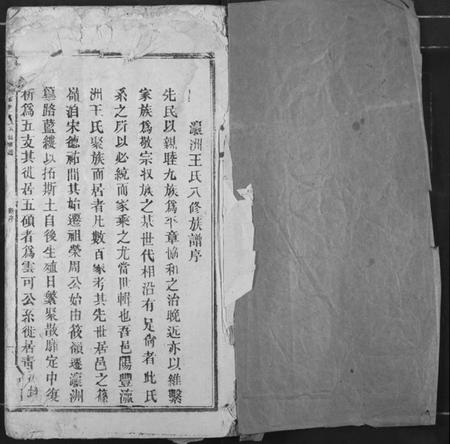 瀛洲王氏八修族譜序
先民以親睦九族為平章協和之治晚近亦以維繫
家族為敬宗收族之基世代相沿有足尚者此氏
系之所以必統而家乘之尤當世輯也吾邑陽豐瀛
洲王氏聚族而居者凡數百家考其先世居邑之篠
嶺泊宋德祐間其始遷祖榮周公始由篠嶺遷瀛洲
篳路藍縷以拓斯土自後生殖日繁聚散靡定中復
析為五支其徙居五碩者為雲可公系徙居青